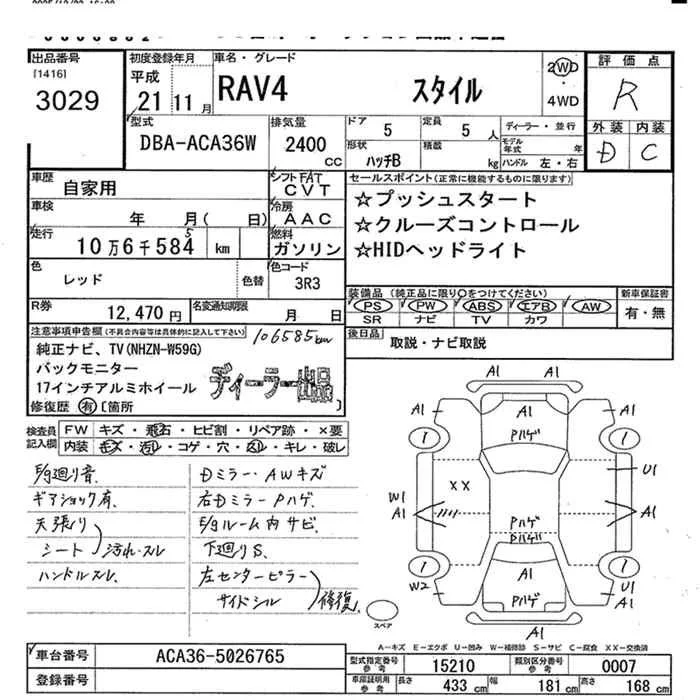 出品番号
[1416]
3029
初度登録年月
平成
21 11 月
車名・グレード
RAV4 スタイル
2WD
・
4WD
評価点
R
外装 内装
D C
型式
DBA-ACA36W
排気量
2400
cc
ドア 5
定員 5 人
形状 ハッチB
積載 kg
ディーラー・並行
モデル年式 年
ハンドル 左・右
車歴
自家用
シフト FAT
CVT
車検
年 月( 日)
冷房
AAC
走行
10万6千584 km
5
燃料
ガソリン
色
レッド
色替
色コード
3R3
R券
12,470 円
名変通知期限
月 日
セールスポイント (正常に機能するものに限ります)
☆プッシュスタート
☆クルーズコントロール
☆HIDヘッドライト
装備品 (純正品に限り○をつけてください)
PS PW ABS エアB AW
SR ナビ TV カワ
新車保証書
有・無
後日品
取説・ナビ取説
注意事項申告欄 (不具合内容等は具体的に記入して下さい)
106585km
純正ナビ、TV(NHZN-W59G)
バックモニター
17インチアルミホイール
ディーラー出品
修復歴 有 [箇所 ]
検査員
記入欄
FW キズ・飛石・ヒビ割・リペア跡・×要
内装 キズ・汚レ・コゲ・穴・スレ・キレ・破レ
E/g廻り音.
ギアショック有.
天張り
シート 汚れ・スレ
ハンドルスレ.
Dミラー・AWキズ
右DミラーPハゲ.
E/gルーム内サビ
下廻りS.
左センターピラー
サイドシル 修復.
A1
A1
A1
A1
Pハゲ
1
1
XX
U1
W1
A1
A1
Pハゲ
Pハゲ
1
1
W2
A1
A1
U1
A1
Pハゲ
A1
スペア
A-キズ E-エクボ U-凹み W-補修跡 S-サビ C-腐食 XX-交換済
車台番号
ACA36-5026765
登録番号
型式指定番号
参考
15210
類別区分番号
参考
0007
車庫証明用
参考
長さ 433 cm
幅 181 cm
高さ 168 cm